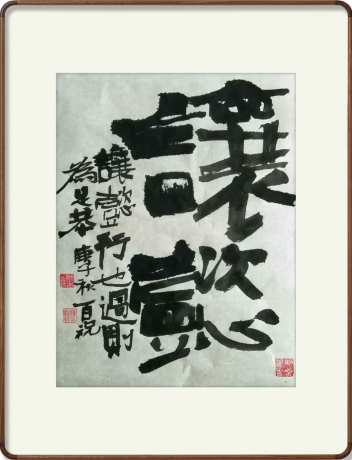 讓懿
讓懿行也過則
為足恭 庚子秋百祝